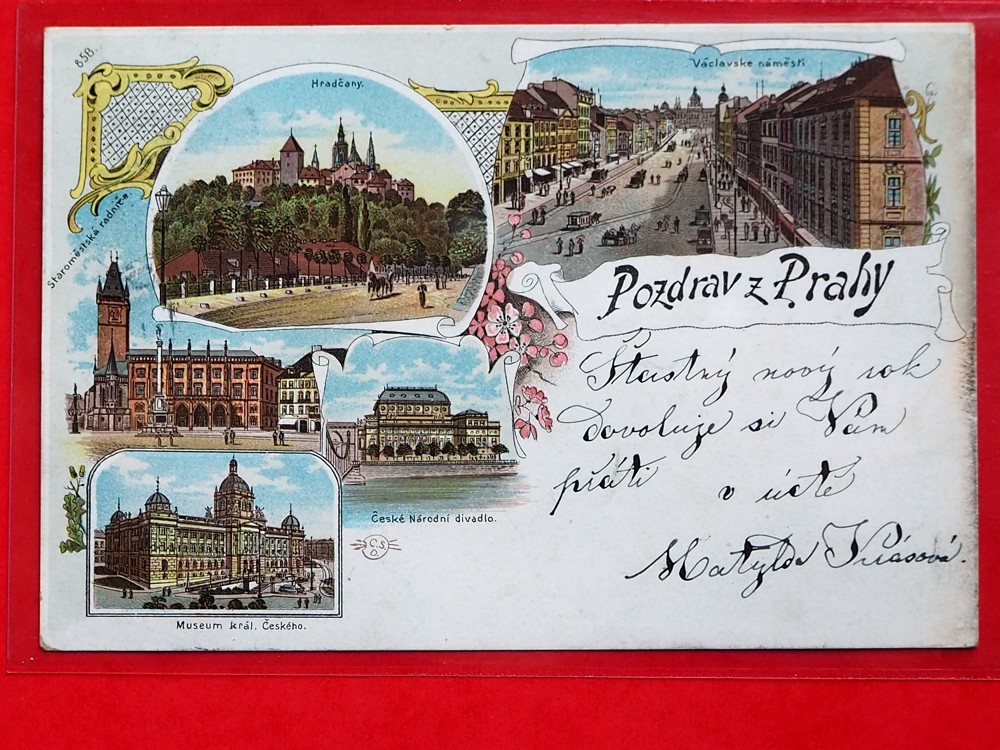 858.
Hradčany.
Václavske náměstí
Staroměstská radnice.
Pozdrav z Prahy
Šťastný nový rok
dovoluje si Vám
přáti v úctě
Matylda
České Národní divadlo.
C.S.
D.
Museum král. Českého.